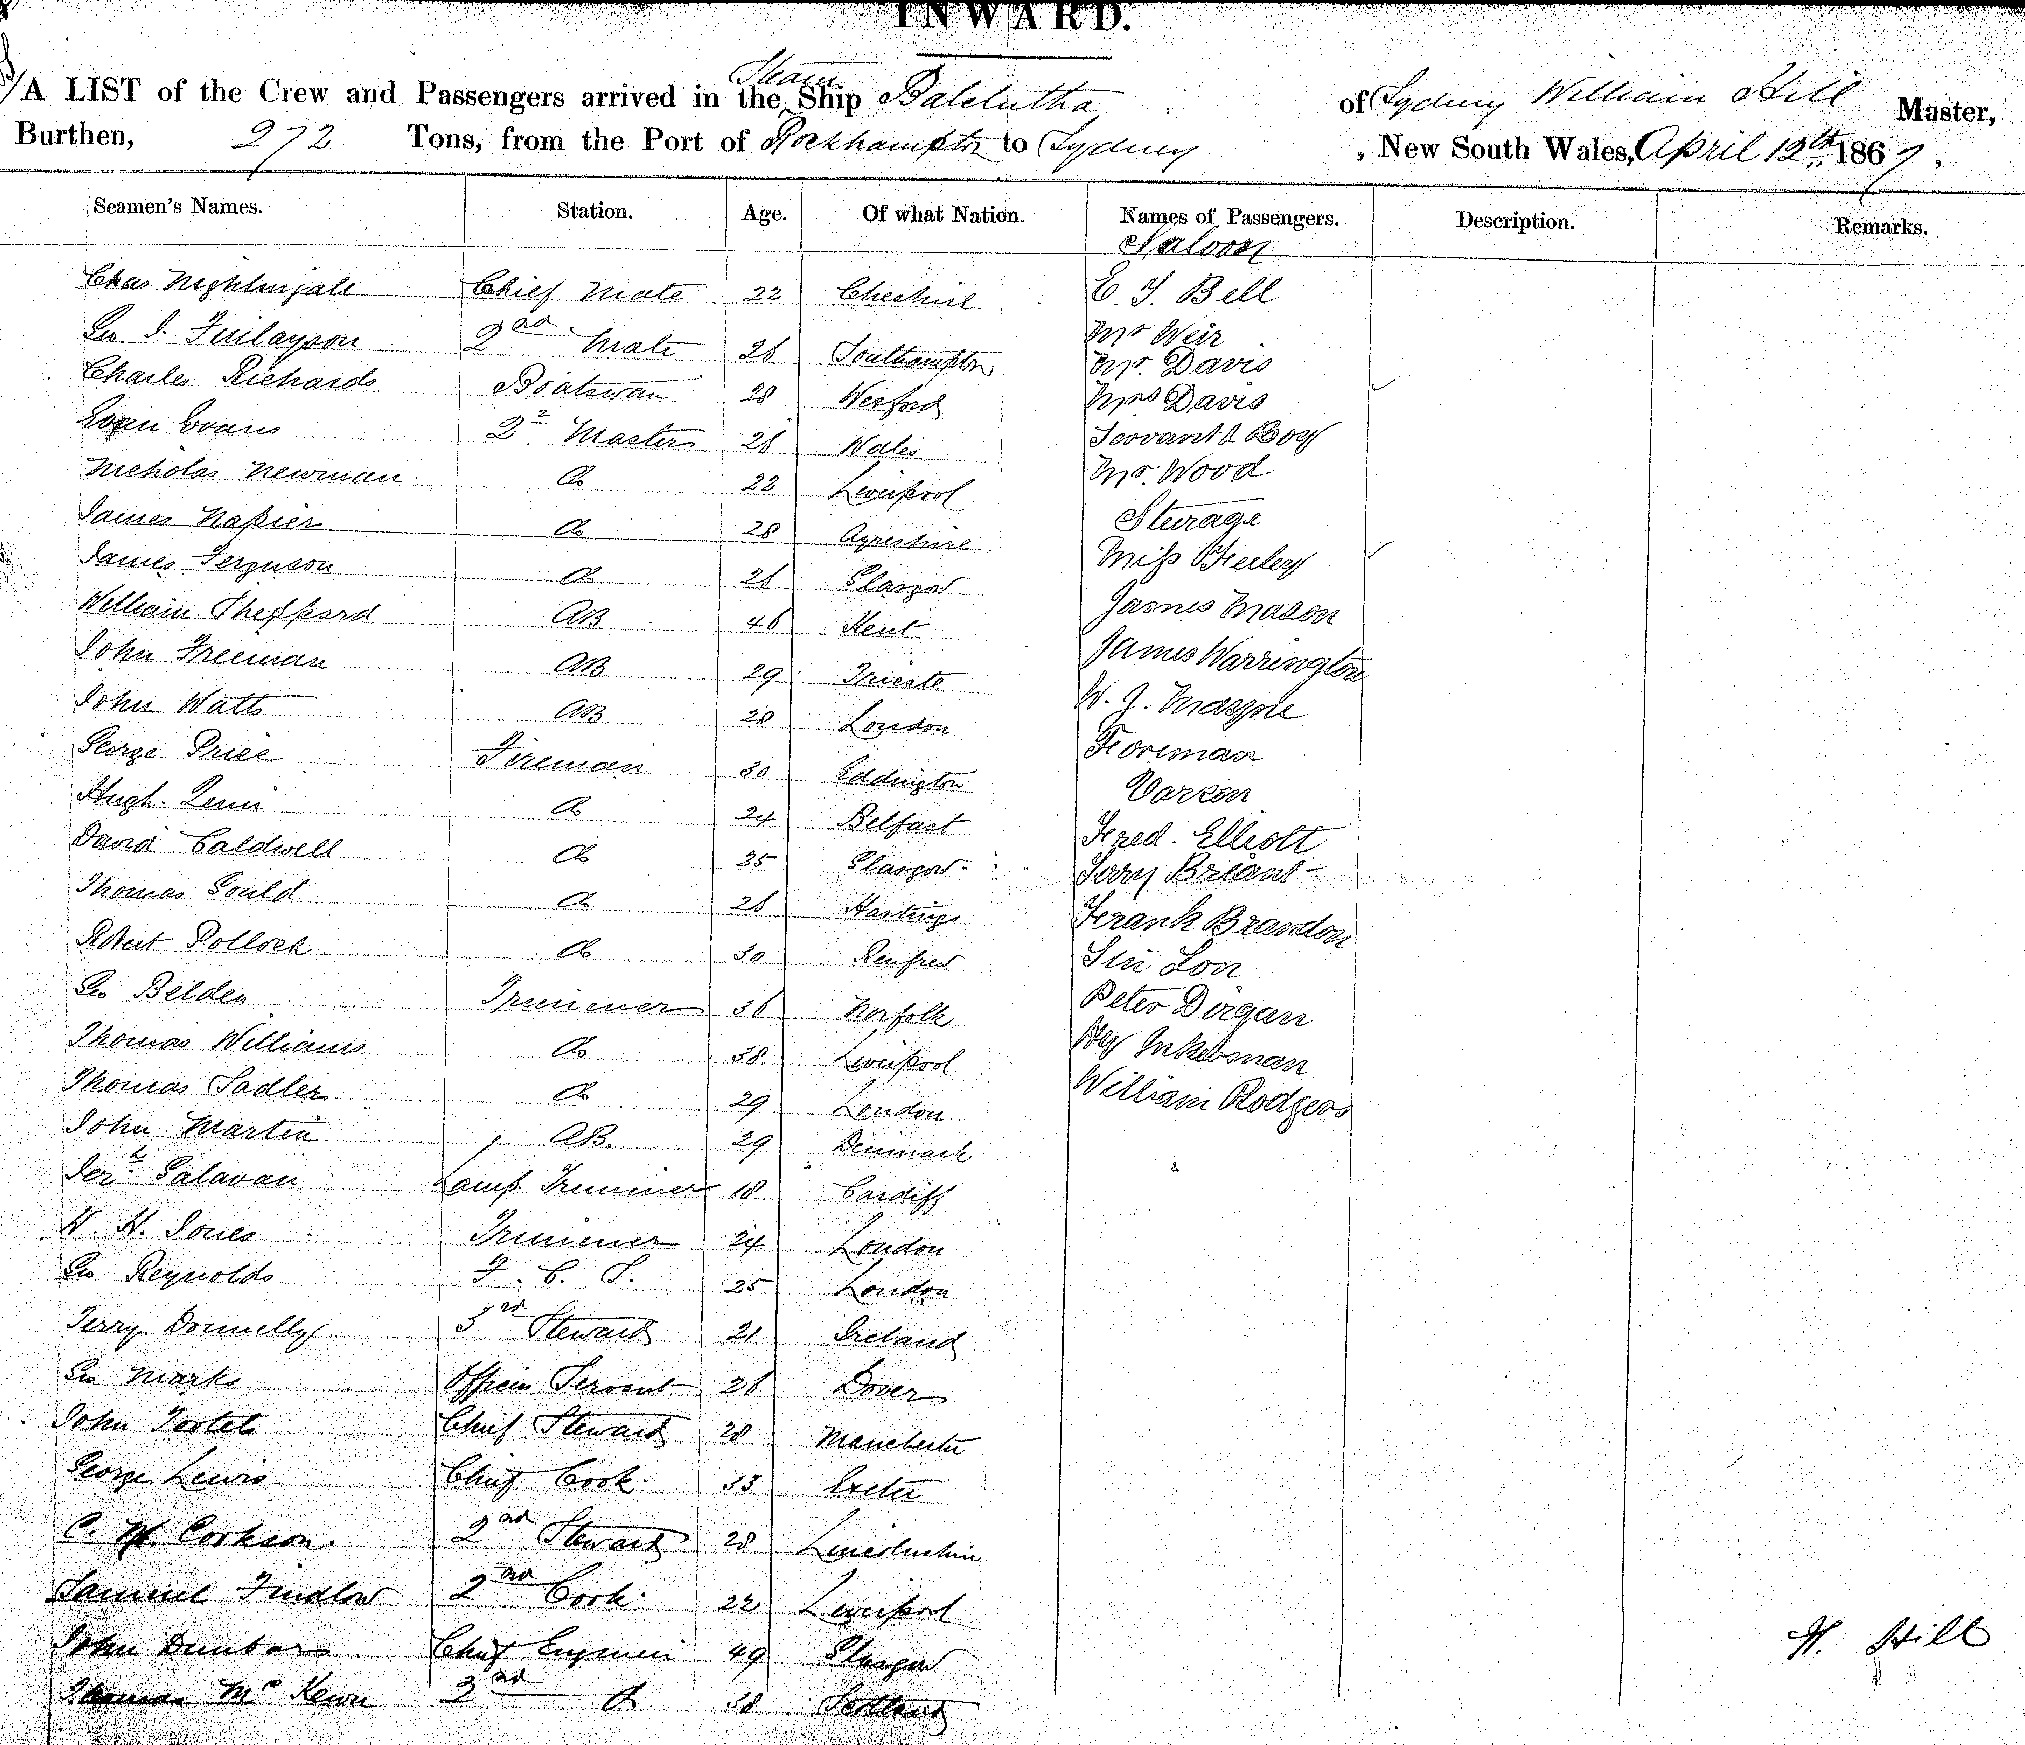 INWARD.
A LIST of the Crew and Passengers arrived in the Steam Ship Balclutha of Sydney William Hill Master,
Burthen, 272 Tons, from the Port of Rockhampton to Sydney , New South Wales, April 12th 1867.
Seamen's Names. Station. Age. Of what Nation. Names of Passengers. Description. Remarks.
Saloon
Chas Nightingale Chief Mate 22 Cheshire E. J. Bell
Geo J. Finlayson 2nd Mate 26 Southampton Mr Weir
Charles Richards Boatswan 28 Wexford Mr. Davis
Mrs Davis
Evan Evans 2r Masters 26 Wales Servant & Boy
Nicholas Newman Do 22 Liverpool Mr. Wood
James Napier Do 28 Ayreshire Sturage
James Ferguson Do 26 Glasgow Miss Heeley
William Sheppard AB 46 Kent James Mason
John Freeman AB 29 Trieste James Warrington
John Watts AB 28 London
George Price Fireman 30 Eddington Foreman
Hugh Do 24 Belfast
David Caldwell Do 35 Glasgow Fred. Elliott
Thomas Gould Do 26 Hastings Jerry Briant
Robert Pollock Do 30 Renfrew Frank Brandon
Sin Lon
Geo Belden Trimmer 36 Norfolk Peter Dirgan
Thomas Williams Do 38 Liverpool
Thomas Sadler Do 29 London William Rodgers
John Martin AB. 29 Denmark
Jerh Galavan Lamp Trimmer 18 Cardiff
W. H. Jones Trimmer 24 London
Geo Reynolds F. C. S. 25 London
Terry Donnelly 3rd Steward 21 Ireland
Geo Marks Officers Servant 26 Dover
John Chief Steward 28 Manchester
George Lewis Chief Cook 33 Exeter
C. W. Cookson 2nd Steward 28 Lincolnshire
Samuel Findlow 2nd Cook 22 Liverpool
John Dunbar Chief Engineer 49 Glasgow
Thomas McKewn 2nd Do 38 Scotland
W. Hill